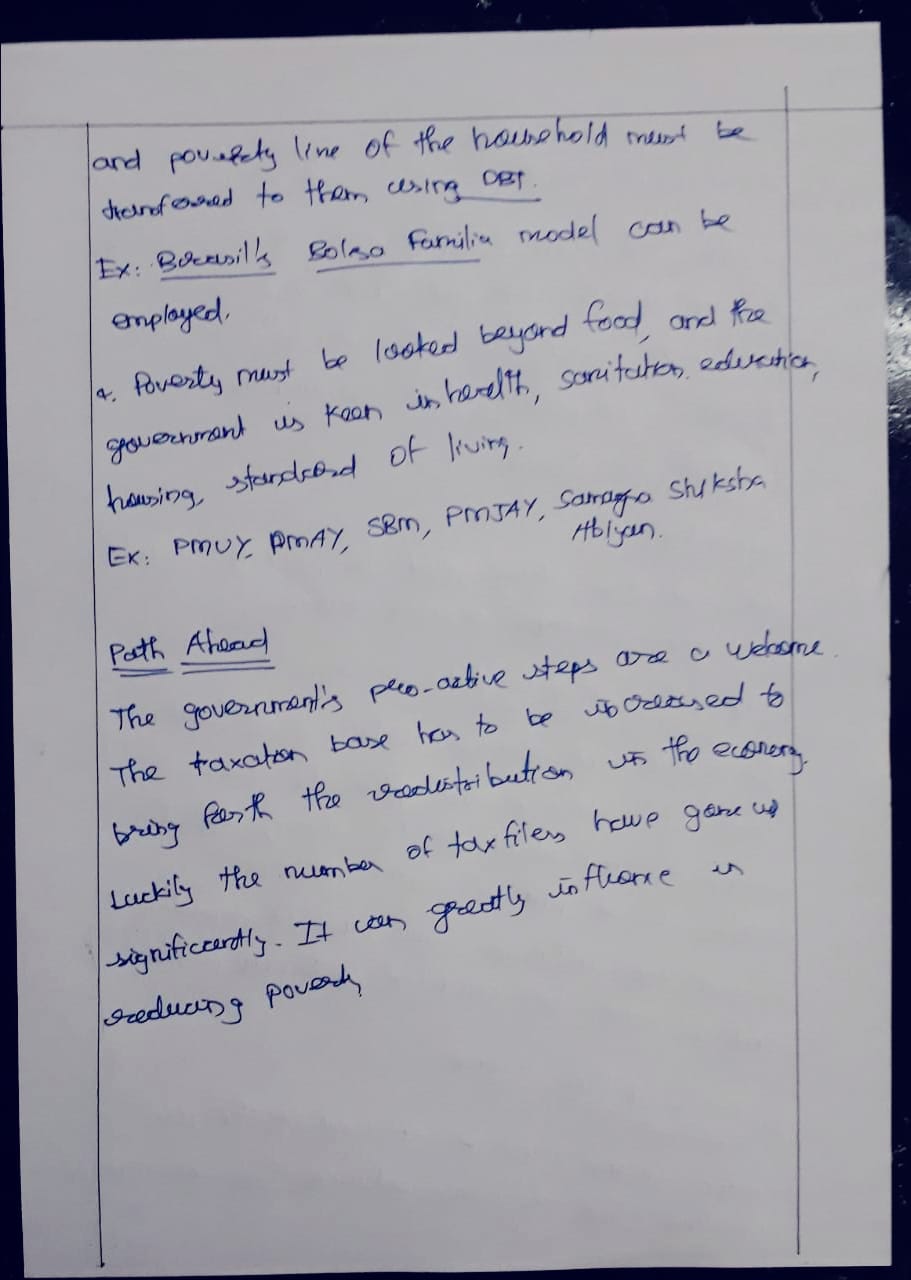 and poverty line of the household must be
transferred to them using DBT.
Ex: Brazil's Bolsa Familia model can be
employed.
4. Poverty must be looked beyond food, and the
government is keen in health, sanitation, education,
housing, standard of living.
Ex: PMUY, PMAY, SBM, PMJAY, Samagra Shiksha
Abiyan.
Path Ahead
The government's pro-active steps are a welcome.
The taxation base has to be increased to
bring forth the redistribution in the economy.
Luckily the number of tax filers have gone up
significantly. It can greatly influence in
reducing poverty